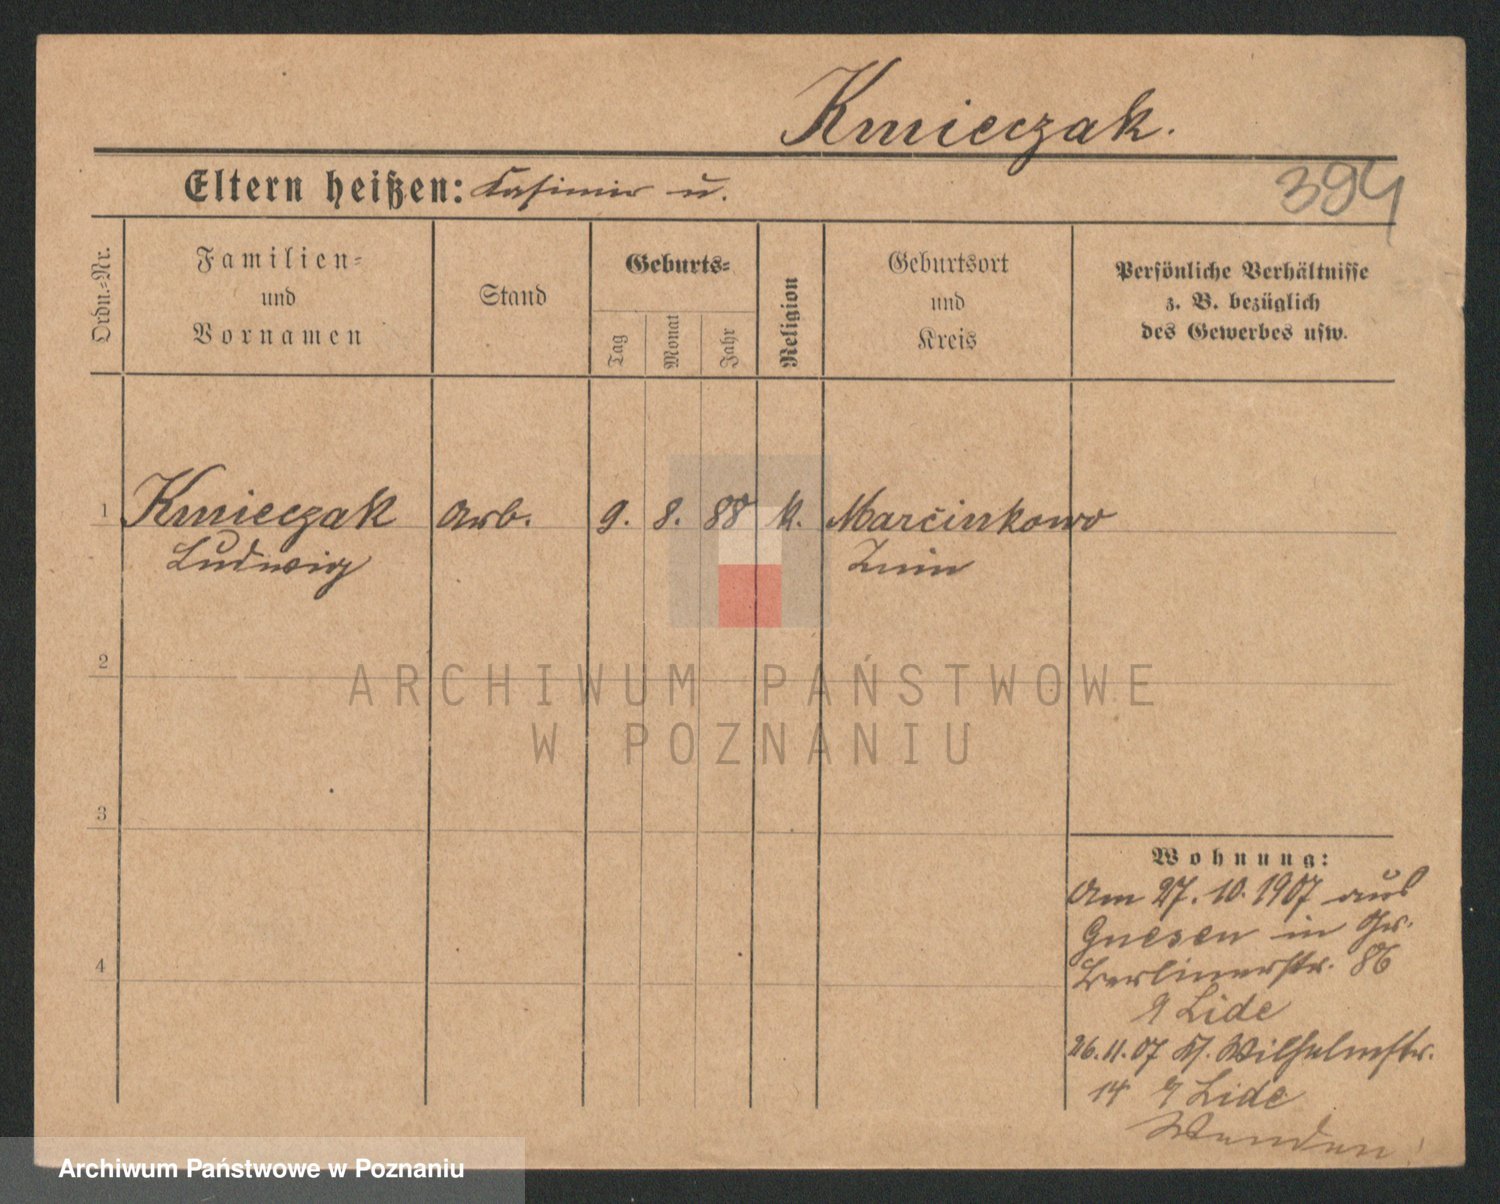 Kmieczak.
Eltern heißen: Kasimir u.
394
Ordn.-Nr.
Familien-
und
Vornamen
Stand
Geburts-
Tag
Monat
Jahr
Religion
Geburtsort
und
Kreis
Persönliche Verhältnisse
z. B. bezüglich
des Gewerbes usw.
1 Kmieczak Arb. 9. 8. 88 k. Marcinkowo
Ludwig Znin
2
ARCHIWUM PAŃSTWOWE
W POZNANIU
3
4
Wohnung:
Am 27. 10. 1907 aus
Gnesen in Gr.
Berlinerstr. 86
Lide
26.11.07 Kl. Wilhelmstr.
14 Lide
Wenden!
Archiwum Państwowe w Poznaniu